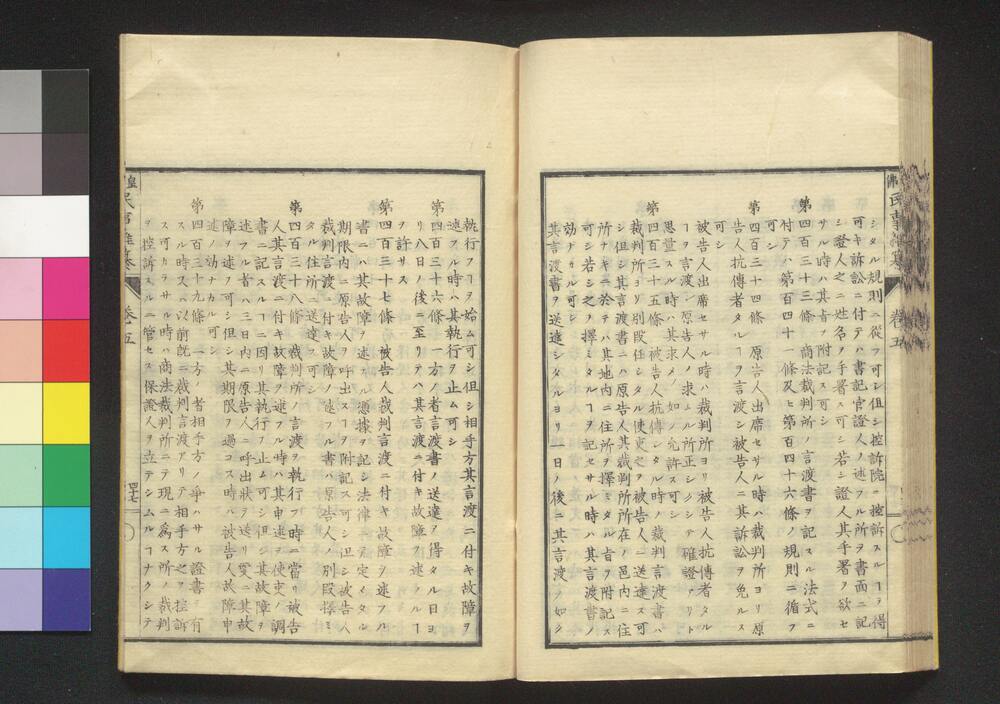 シタル規則ニ從フ可シ但シ控訴院ニ控訴スルヿヲ得
可キ訴訟ニ付テハ書記官證人ノ述フル所ヲ書面ニ記
シ證人之ニ姓名ヲ手署ス可シ若シ證人其手署ヲ欲セ
サル時ハ其旨ヲ附記ス可シ
第四百三十三條 商法裁判所ノ言渡書ヲ記スル法式ニ
付テハ第百四十一條及ヒ第百四十六條ノ規則ニ循フ
可シ
第四百三十四條 原告人出席セサル時ハ裁判所ヨリ原
告人抗傳者タルヿヲ言渡シ被告人ニ其訴訟ヲ免ルス
可シ
被告人出席セサル時ハ裁判所ヨリ被告人抗傳者タル
ヿヲ言渡シ原告人ノ求ムル所正シクシテ確證アリト
思量スル時ハ其求メノ如ク允許ス可シ
第四百三十五條 被告人抗傳シタル時ノ裁判言渡書ハ
裁判所ヨリ別段任シタル使吏之ヲ被告人ニ送達ス可
シ但シ其言渡書ニハ原告人其裁判所所在ノ邑内ニ住
所ナキニ於テハ其地内ニ住所ヲ擇ミタル旨ヲ附記ス
可シ若シ之ヲ擇ミタルヿヲ記セサル時ハ其言渡書ノ
効ナカル可シ
其言渡書ヲ送達シタルヨリ一日ノ後ニ其言渡ノ如ク
卷五
執行フヿヲ始ム可シ但シ相手方其言渡ニ付キ故障ヲ
述フル時ハ其執行ヲ止ム可シ
第四百三十六條 一方ノ者言渡書ノ送達ヲ得タル日ヨ
リ八日ノ後ニ至リテハ其言渡ニ付キ故障ヲ述フルヿ
ヲ許サス
第四百三十七條 被告人裁判言渡ニ付キ故障ヲ述フル
書ニハ其故障ヲ述フル憑據ヲ記シ法律ニテ定メタル
期限内ニ原告人ヲ呼出スヿヲ附記ス可シ但シ被告人
裁判言渡ニ付キ故障ヲ述フル書ハ原告人ノ別段擇ミ
タル住所ニ送達ス可シ
第四百三十八條 裁判所ノ言渡ヲ執行フ時ニ當リ被告
人其言渡ニ付キ故障ヲ述フル時ハ其申述ヲ使吏ノ調
書ニ記スルヿニ因リ其執行ヲ止ム可シ但シ其故障ヲ
述フル者ハ三日内ニ原告人ニ呼出狀ヲ送リ更ニ其故
障ヲ述フ可シ但シ其期限ヲ過コス時ハ被告人故障申
述ノ効ナカル可シ
第四百三十九條 一方ノ者相手方ノ爭ハサル證書ヲ有
スル時又ハ以前既ニ裁判言渡アリテ相手方之ヲ控訴
ス可カラサル時ハ商法裁判所ニテ現ニ爲ス所ノ裁判
ヲ控訴スルニ管セス保證人ヲ立テシムルヿナクシテ
卷五